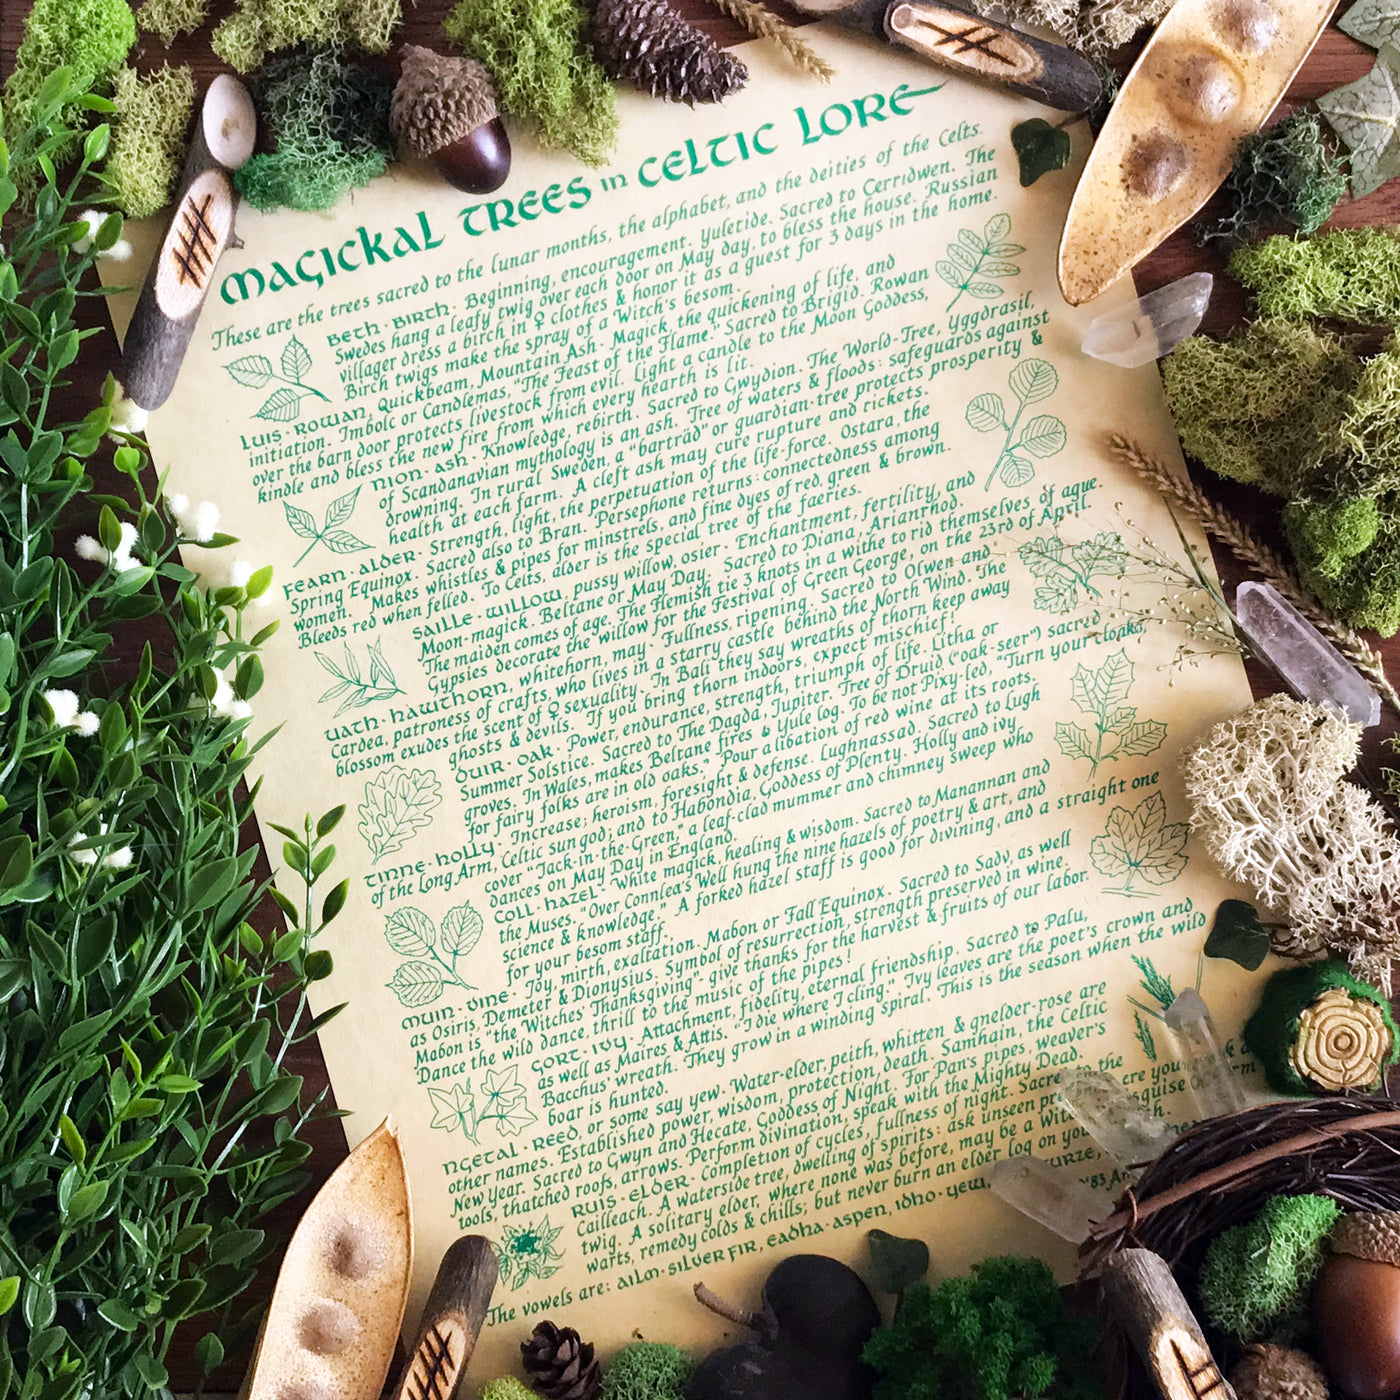 Magickal Trees in Celtic Lore
These are the trees sacred to the lunar months, the alphabet, and the deities of the Celts.
Beth · Birth · Beginning, encouragement. Yuletide. Sacred to Cerridwen. The
Swedes hang a leafy twig over each door on May day, to bless the house. Russian
villager dress a birch in ♀ clothes & honor it as a guest for 3 days in the home.
Birch twigs make the spray of a Witch's besom.
Luis · Rowan, Quickbeam, Mountain Ash · Magick, the quickening of life, and
initiation. Imbolc or Candlemas, "The Feast of the Flame." Sacred to Brigid. Rowan
over the barn door protects livestock from evil. Light a candle to the Moon Goddess,
kindle and bless the new fire from which every hearth is lit.
Nion · Ash · Knowledge, rebirth. Sacred to Gwydion. The World-Tree, Yggdrasil,
of Scandanavian mythology is an ash. Tree of waters & floods: safeguards against
drowning. In rural Sweden, a "bartråd" or guardian-tree protects prosperity &
health at each farm. A cleft ash may cure rupture and rickets.
Fearn · Alder · Strength, light, the perpetuation of the life-force. Ostara, the
Spring Equinox. Sacred also to Bran. Persephone returns: connectedness among
women. Makes whistles & pipes for minstrels, and fine dyes of red, green & brown.
Bleeds red when felled. To Celts, alder is the special tree of the faeries.
Saille · Willow, pussy willow, osier · Enchantment, fertility, and
Moon-magick. Beltane or May Day: Sacred to Diana, Arianrhod.
The maiden comes of age. The Flemish tie 3 knots in a withe to rid themselves of ague.
Gypsies decorate the willow for the Festival of Green George, on the 23rd of April.
Uath · Hawthorn, whitehorn, may · Fullness, ripening. Sacred to Olwen and
Cardea, patroness of crafts, who lives in a starry castle behind the North Wind. The
blossom exudes the scent of ♀ sexuality. In Bali they say wreaths of thorn keep away
ghosts & devils. If you bring thorn indoors, expect mischief!
Duir · Oak · Power, endurance, strength, triumph of life. Litha or
Summer Solstice. Sacred to The Dagda, Jupiter. Tree of Druid ("oak-seer") sacred
groves. In Wales, makes Beltane fires & Yule log. To be not Pixy-led, "Turn your cloaks,
for fairy folks are in old oaks." Pour a libation of red wine at its roots.
Tinne · Holly · Increase; heroism, foresight & defense. Lughnassad. Sacred to Lugh
of the Long Arm, Celtic sun god; and to Habondia, Goddess of Plenty. Holly and ivy
cover "Jack-in-the-Green," a leaf-clad mummer and chimney sweep who
dances on May Day in England.
Coll · Hazel · White magick, healing & wisdom. Sacred to Manannan and
the Muses. "Over Connlea's Well hung the nine hazels of poetry & art, and
science & knowledge." A forked hazel staff is good for divining, and a straight one
for your besom staff.
Muin · Vine · Joy, mirth, exaltation. Mabon or Fall Equinox. Sacred to Sadv, as well
as Osiris, Demeter & Dionysius. Symbol of resurrection, strength preserved in wine.
Mabon is "the Witches' Thanksgiving" · give thanks for the harvest & fruits of our labor.
Dance the wild dance, thrill to the music of the pipes!
Gort · Ivy · Attachment, fidelity, eternal friendship. Sacred to Palu,
as well as Maires & Attis. "I die where I cling." Ivy leaves are the poet's crown and
Bacchus' wreath. They grow in a winding spiral. This is the season when the wild
boar is hunted.
Ngetal · Reed, or some say yew. Water-elder, peith, whitten & gnelder-rose are
other names. Established power, wisdom, protection, death. Samhain, the Celtic
New Year. Sacred to Gwyn and Hecate, Goddess of Night. For Pan's pipes, weaver's
tools, thatched roofs, arrows. Perform divination, speak with the Mighty Dead.
Ruis · Elder · Completion of cycles, fullness of night. Sacred to the
Cailleach. A waterside tree, dwelling of spirits: ask unseen ere you
twig. A solitary elder, where none was before, may be a disguise
warts, remedy colds & chills; but never burn an elder log on
The vowels are: Ailm · Silver Fir, Eadha · Aspen, Idho · Yew,